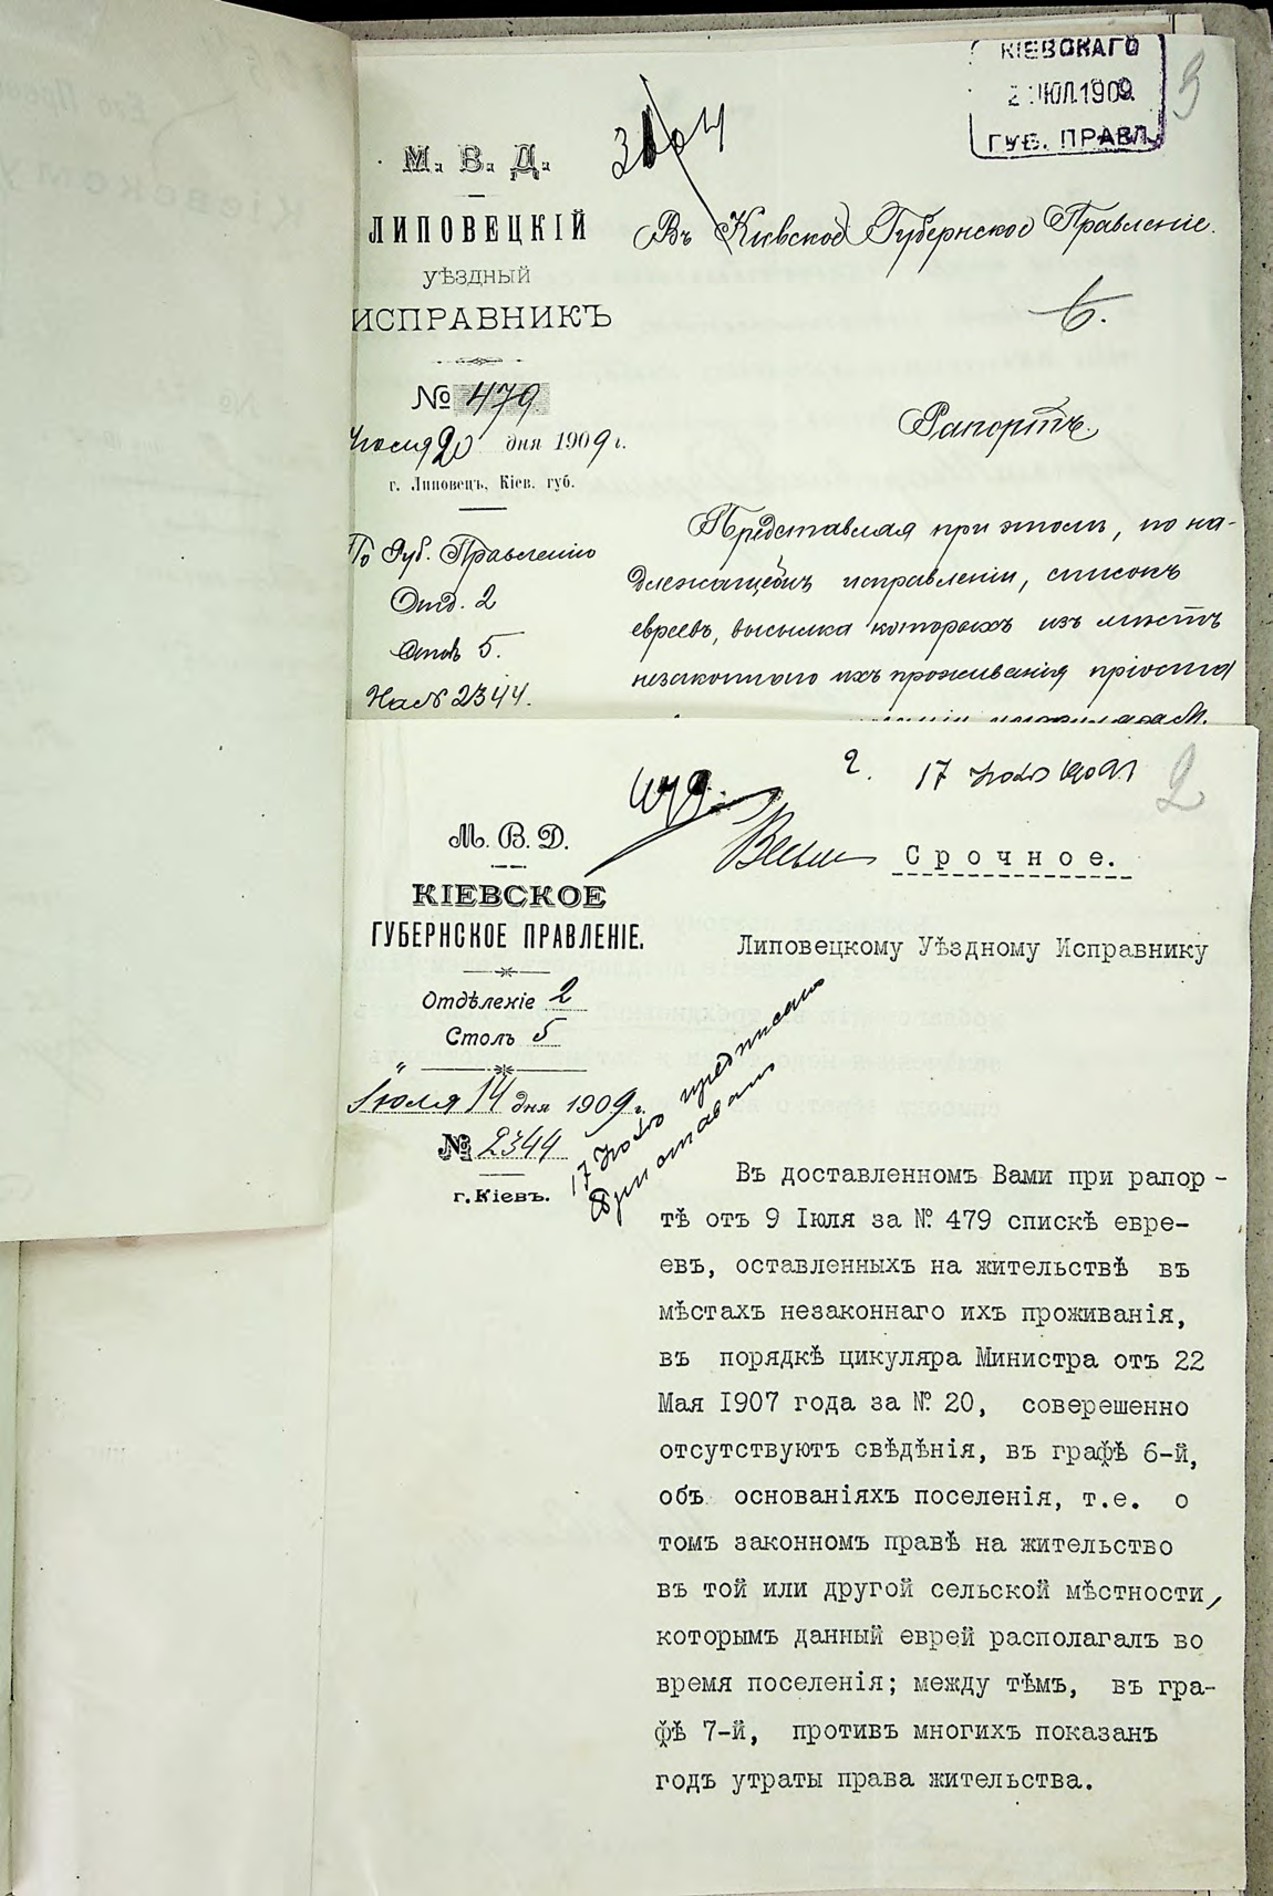 КІЕВСКАГО
2 ІЮЛ.1909.
ГУБ. ПРАВЛ.
3
М. В. Д.
ЛИПОВЕЦКІЙ
уѣздный
ИСПРАВНИКЪ
№ 479
Іюля 20 дня 1909 г.
г. Липовецъ, Кіев. губ.
По Губ. Правленію
Отд. 2
Столъ 5.
На № 2344.
Въ Кіевское Губернское Правленіе.
Рапортъ.
Представляя при этомъ, по на-
длежащемъ исправленіи, списокъ
евреевъ, высылка которыхъ изъ мѣстъ
незаконнаго ихъ проживанія пріоста
2. 17 Іюля 1909 г.
2
479
Весьма Срочное.
М. В. Д.
КІЕВСКОЕ
ГУБЕРНСКОЕ ПРАВЛЕНІЕ.
Отдѣленіе 2
Столъ 5
Іюля 14 дня 1909 г.
№ 2344
г. Кіевъ.
17 Іюля предписано
Приставамъ
Липовецкому Уѣздному Исправнику
Въ доставленномъ Вами при рапор-
тѣ отъ 9 Іюля за № 479 спискѣ евре-
евъ, оставленныхъ на жительствѣ въ
мѣстахъ незаконнаго ихъ проживанія,
въ порядкѣ циркуляра Министра отъ 22
Мая 1907 года за № 20, соверешенно
отсутствуютъ свѣдѣнія, въ графѣ 6-й,
объ основаніяхъ поселенія, т.е. о
томъ законномъ правѣ на жительство
въ той или другой сельской мѣстности,
которымъ данный еврей располагалъ во
время поселенія; между тѣмъ, въ гра-
фѣ 7-й, противъ многихъ показанъ
годъ утраты права жительства.